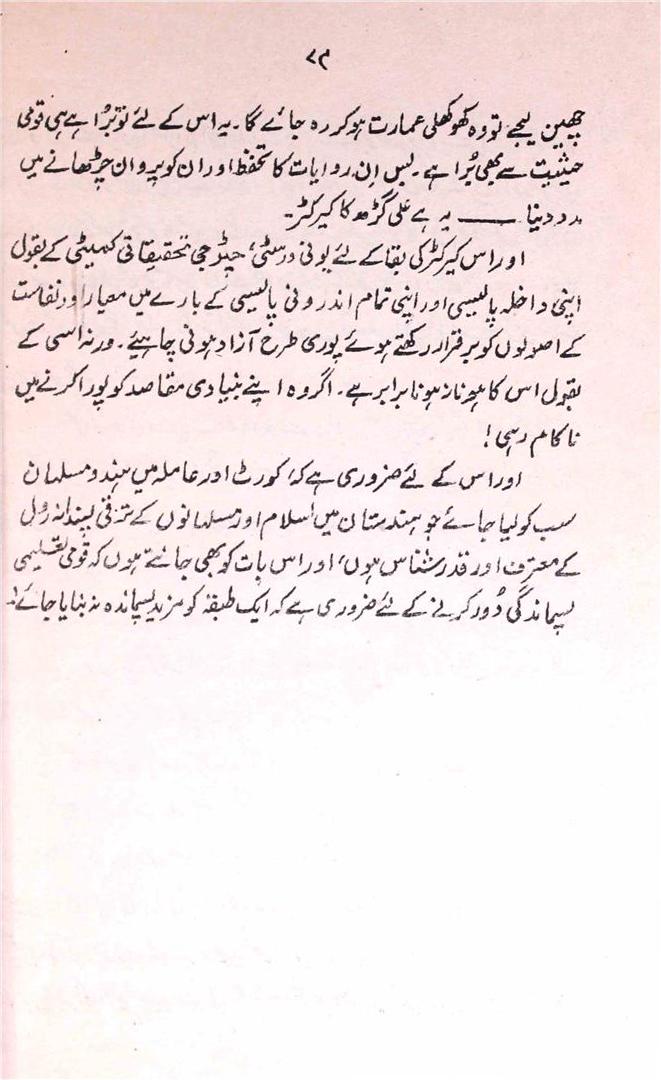 ۷۹
چھین لیجے تو وہ کھوکھلی عمارت ہو کر رہ جائے گا۔ یہ اس کے لئے تو بُرا ہے ہی قومی
حیثیت سے بھی بُرا ہے۔ بس اِن روایات کا تحفظ اور ان کو پروان چڑھانے میں
مدد دینا ــــــ یہ ہے علی گڑھ کا کیرکٹر۔
اور اس کیرکٹر کی بقا کے لئے یونی ورسٹی، چٹرجی تحقیقاتی کمیٹی کے بقول
اپنی داخلہ پالیسی اور اپنی تمام اندرونی پالیسی کے بارے میں معیار اور نفاست
کے اصولوں کو برقرار رکھتے ہوئے پوری طرح آزاد ہونی چاہیئے۔ ورنہ اسی کے
بقول اس کا ہونا نہ ہونا برابر ہے۔ اگر وہ اپنے بنیادی مقاصد کو پورا کرنے میں
ناکام رہی!
اور اس کے لئے ضروری ہے کہ کورٹ اور عاملہ میں ہندو مسلمان
سب کو لیا جائے جو ہندستان میں اسلام اور مسلمانوں کے ترقی پسندانہ رول
کے معترف اور قدر شناس ہوں، اور اس بات کو بھی جانتے ہوں کہ قومی تعلیمی
پسماندگی دُور کرنے کے لئے ضروری ہے کہ ایک طبقہ کو مزید پسماندہ نہ بنایا جائے!